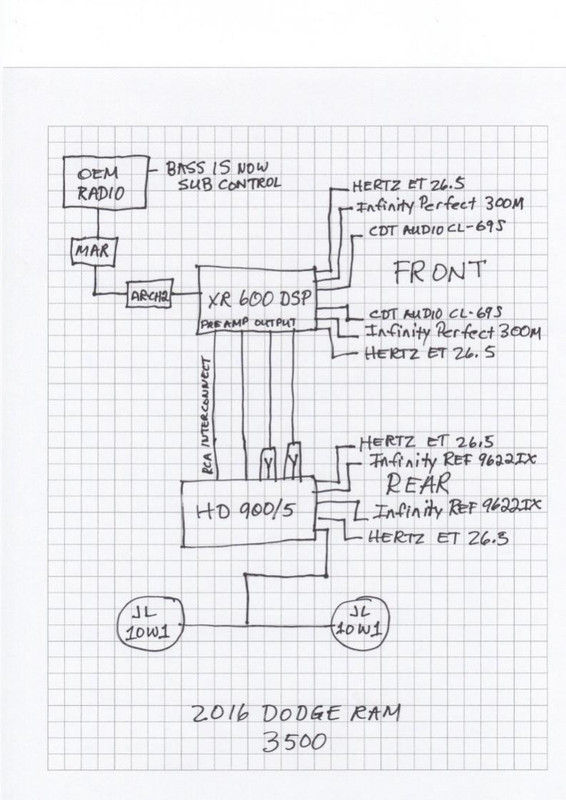 OEM
RADIO
BASS IS NOW
SUB CONTROL
MAR
ARCH2
XR 600 DSP
PREAMP OUTPUT
HERTZ ET 26.5
Infinity Perfect 300M
CDT AUDIO CL-69S
FRONT
CDT AUDIO CL-69S
Infinity Perfect 300M
HERTZ ET 26.5
RCA INTERCONNECT
Y
Y
HD 900/5
HERTZ ET 26.5
Infinity REF 9622IX
REAR
Infinity REF 9622IX
HERTZ ET 26.5
JL
10W1
JL
10W1
2016 DODGE RAM
3500